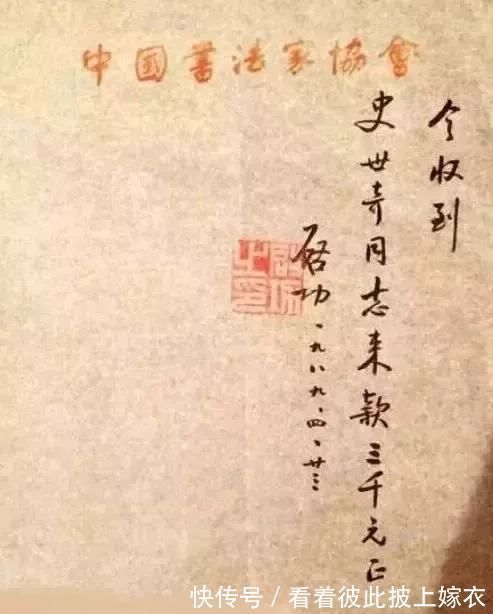 中國書法家協會
今收到
史世奇同志来款三千元正
启功一九八九、四、廿三
快传号/看着彼此披上嫁衣